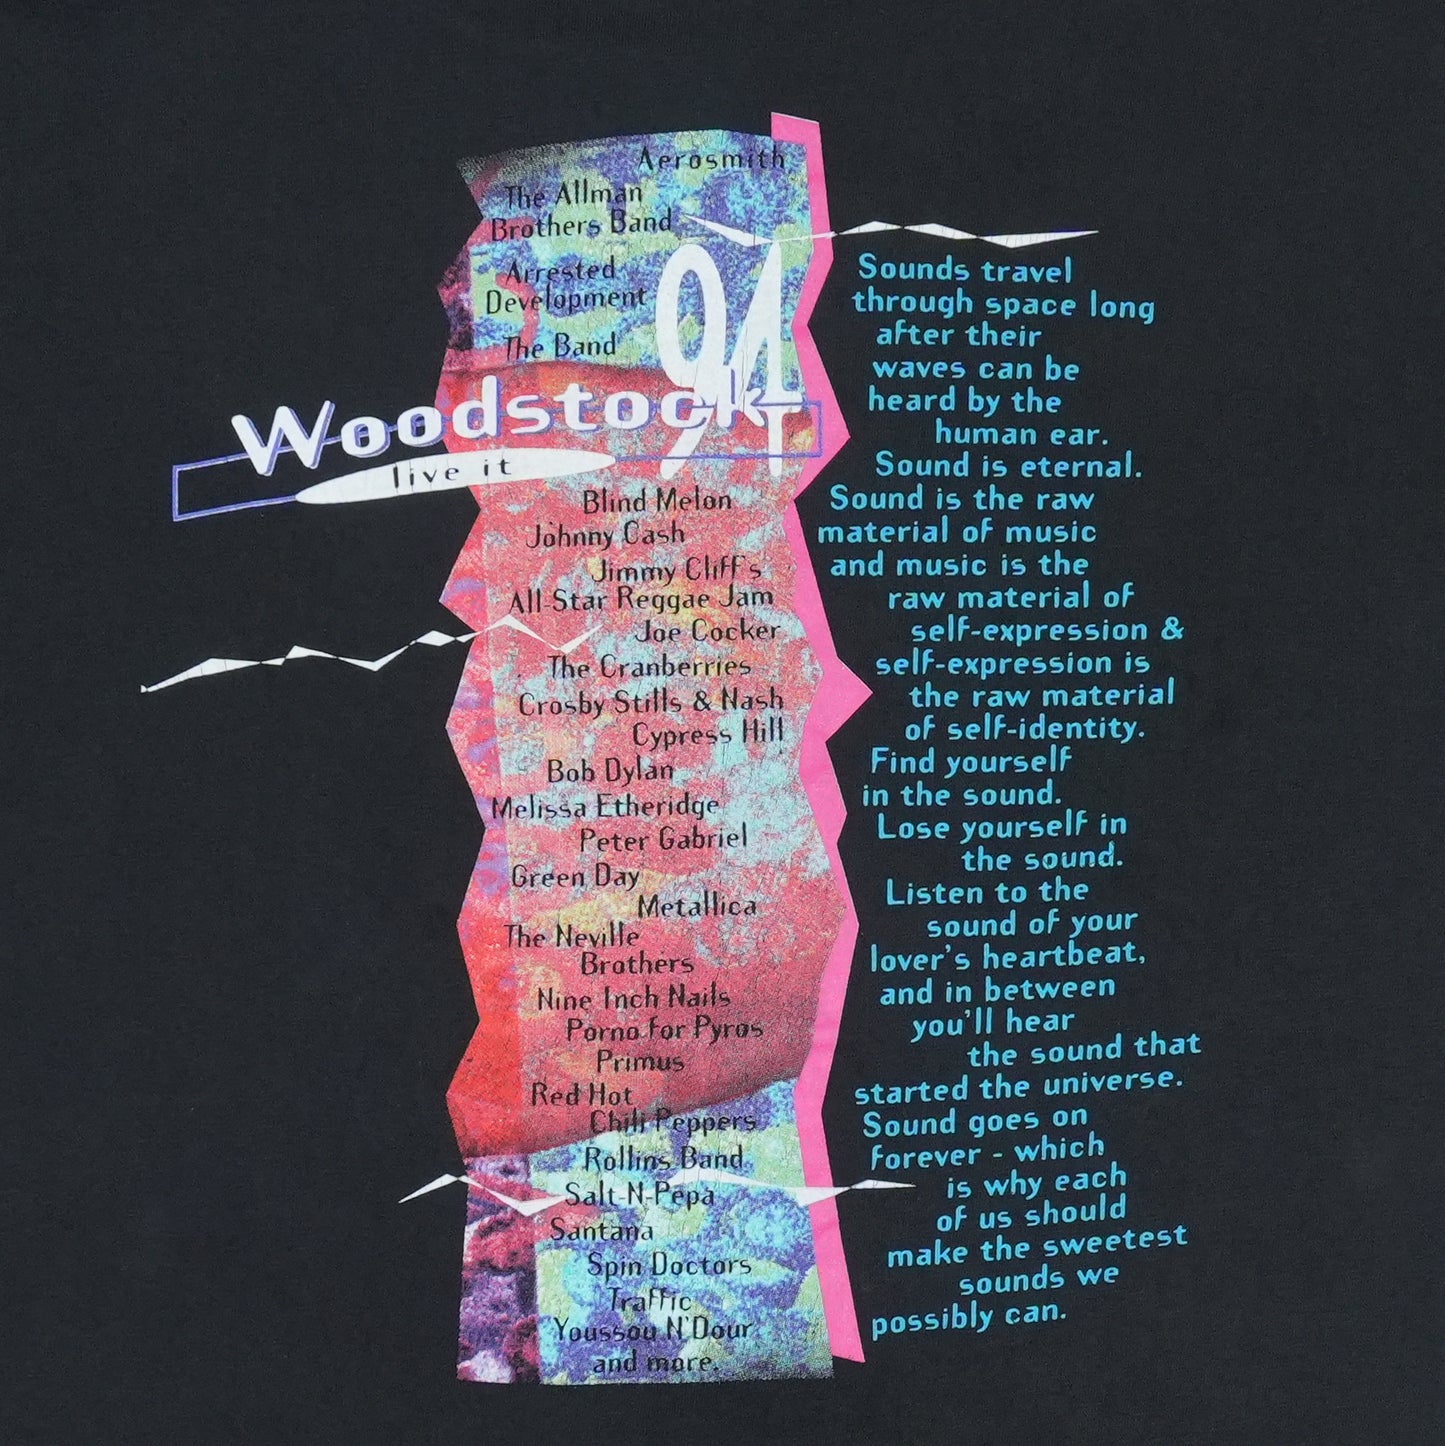 Aerosmith
The Allman
Brothers Band
Arrested
Development
The Band
94
Woodstock
live it
Blind Melon
Johnny Cash
Jimmy Cliff's
All-Star Reggae Jam
Joe Cocker
The Cranberries
Crosby Stills & Nash
Cypress Hill
Bob Dylan
Melissa Etheridge
Peter Gabriel
Green Day
Metallica
The Neville
Brothers
Nine Inch Nails
Porno for Pyros
Primus
Red Hot
Chili Peppers
Rollins Band
Salt-N-Pepa
Santana
Spin Doctors
Traffic
Youssou N'Dour
and more.
Sounds travel
through space long
after their
waves can be
heard by the
human ear.
Sound is eternal.
Sound is the raw
material of music
and music is the
raw material of
self-expression &
self-expression is
the raw material
of self-identity.
Find yourself
in the sound.
Lose yourself in
the sound.
Listen to the
sound of your
lover's heartbeat,
and in between
you'll hear
the sound that
started the universe.
Sound goes on
forever - which
is why each
of us should
make the sweetest
sounds we
possibly can.